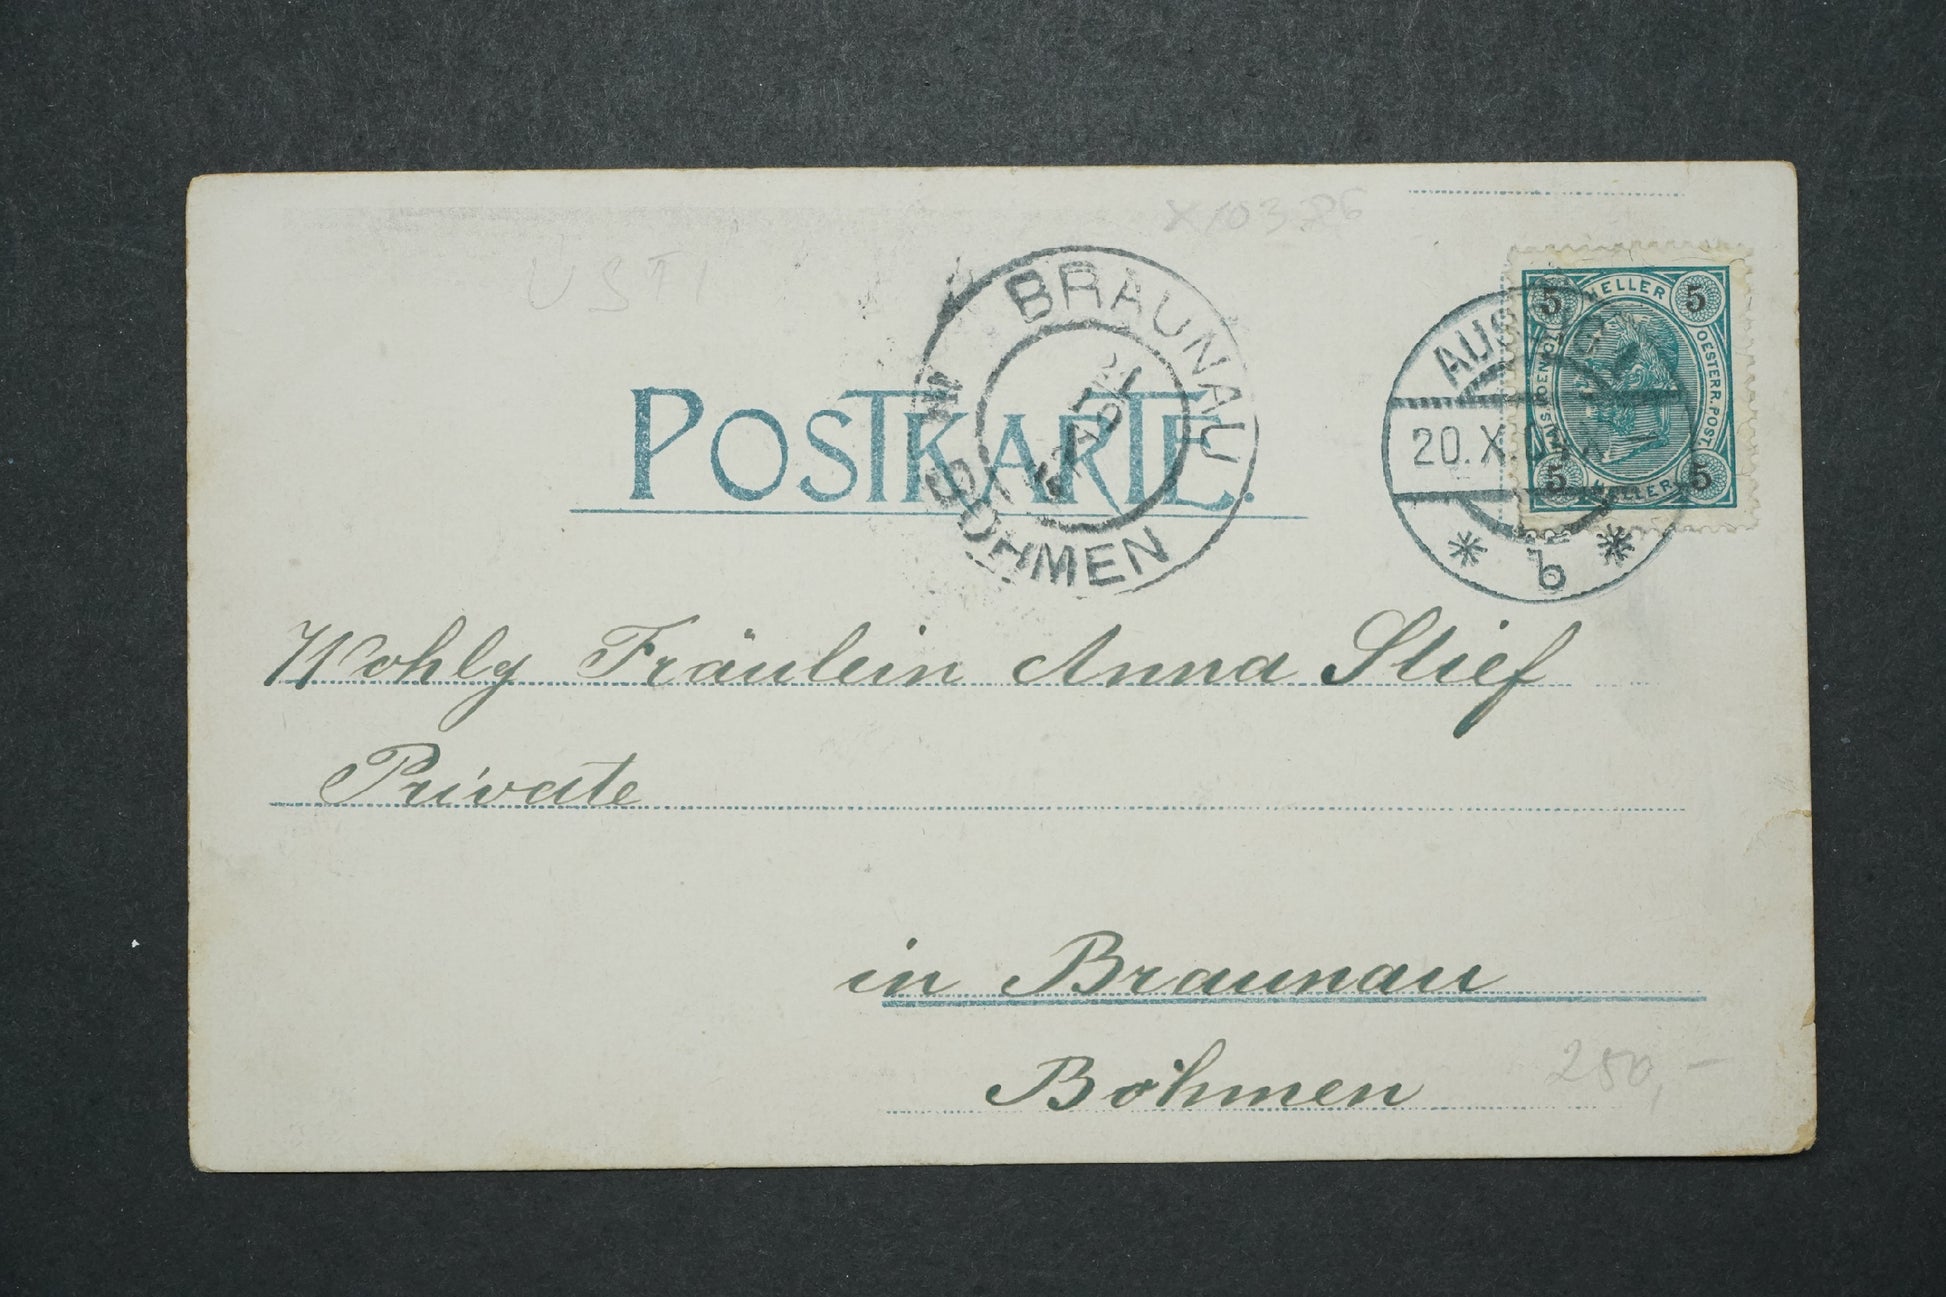 USTI
BRAUNAU
BÖHMEN
5 HELLER 5
OESTERR. POST.
5 HELLER 5
AUS
20.X.
* b *
POSTKARTE.
Wohlg Fräulein Anna Stief
Private
in Braunau
Böhmen
250,-